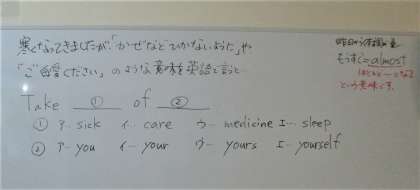 寒くなってきましたが、「かぜなどひかないように」や
「ご自愛ください」のような意味を英語で言うと
Take ① of ②
① ア… sick イ… care ウ… medicine エ… sleep
② ア… you イ… your ウ… yours エ… yourself
もうすぐ=almost
ほとんど…となる
という意味です。